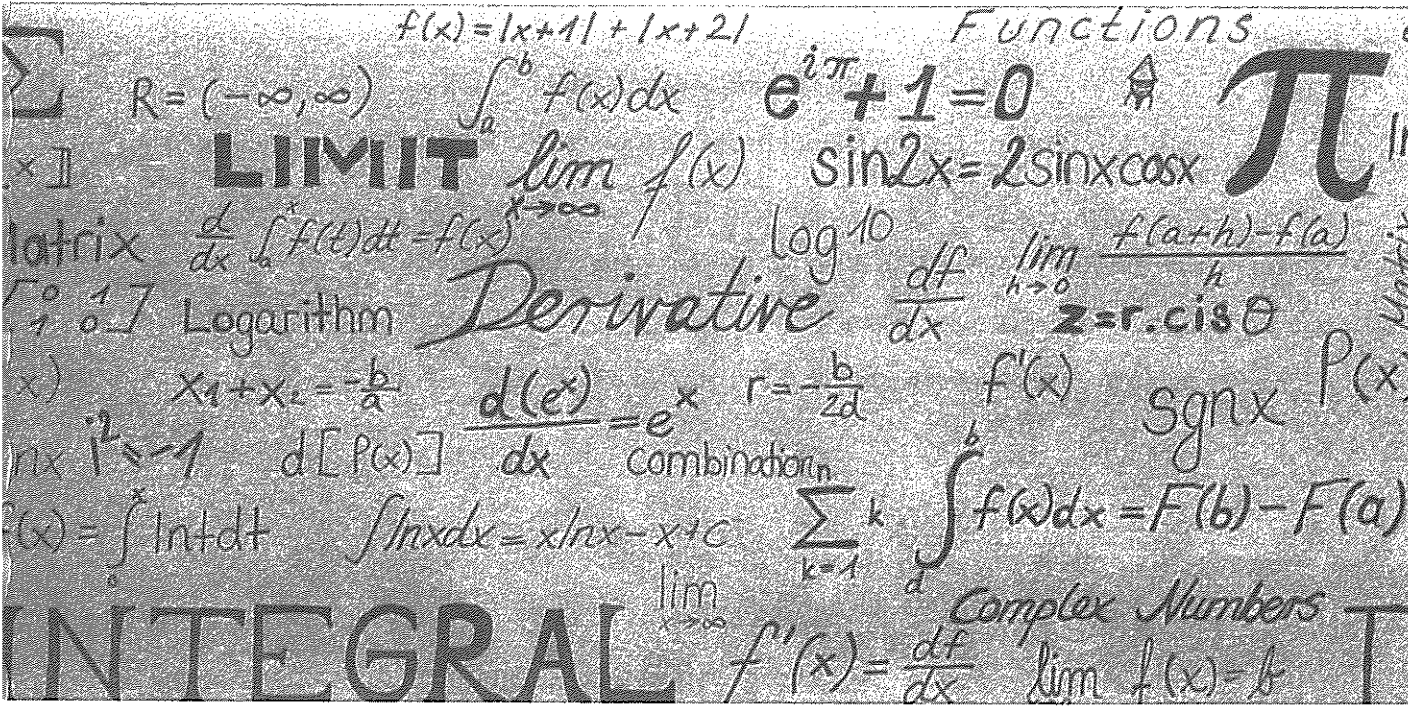 f(x) = |x+1| + |x+2|
Functions
Σ
R = (-∞, ∞)
∫_a^b f(x)dx
e^{iπ} + 1 = 0
π
x]]
LIMIT
lim x→∞ f(x)
sin2x = 2sinxcosx
atrix
d/dx ∫_a^x f(t)dt = f(x)
log 10
df/dx
lim h→0 (f(a+h)-f(a))/h
[0 1
1 0]
Logarithm
Derivative
z = r.cis θ
x)
x₁ + x₂ = -b/a
d(e^x)/dx = e^x
r = -b/2d
f'(x)
sgnx
P(x)
rix
i² = -1
d[P(x)]
combination
f(x) = ∫_0^x lntdt
∫lnxdx = xlnx - x + c
∑_{k=1}^n k
∫_d^b f(x)dx = F(b) - F(a)
INTEGRAL
lim x→∞
f'(x) = df/dx
Complex Numbers
lim f(x) = b